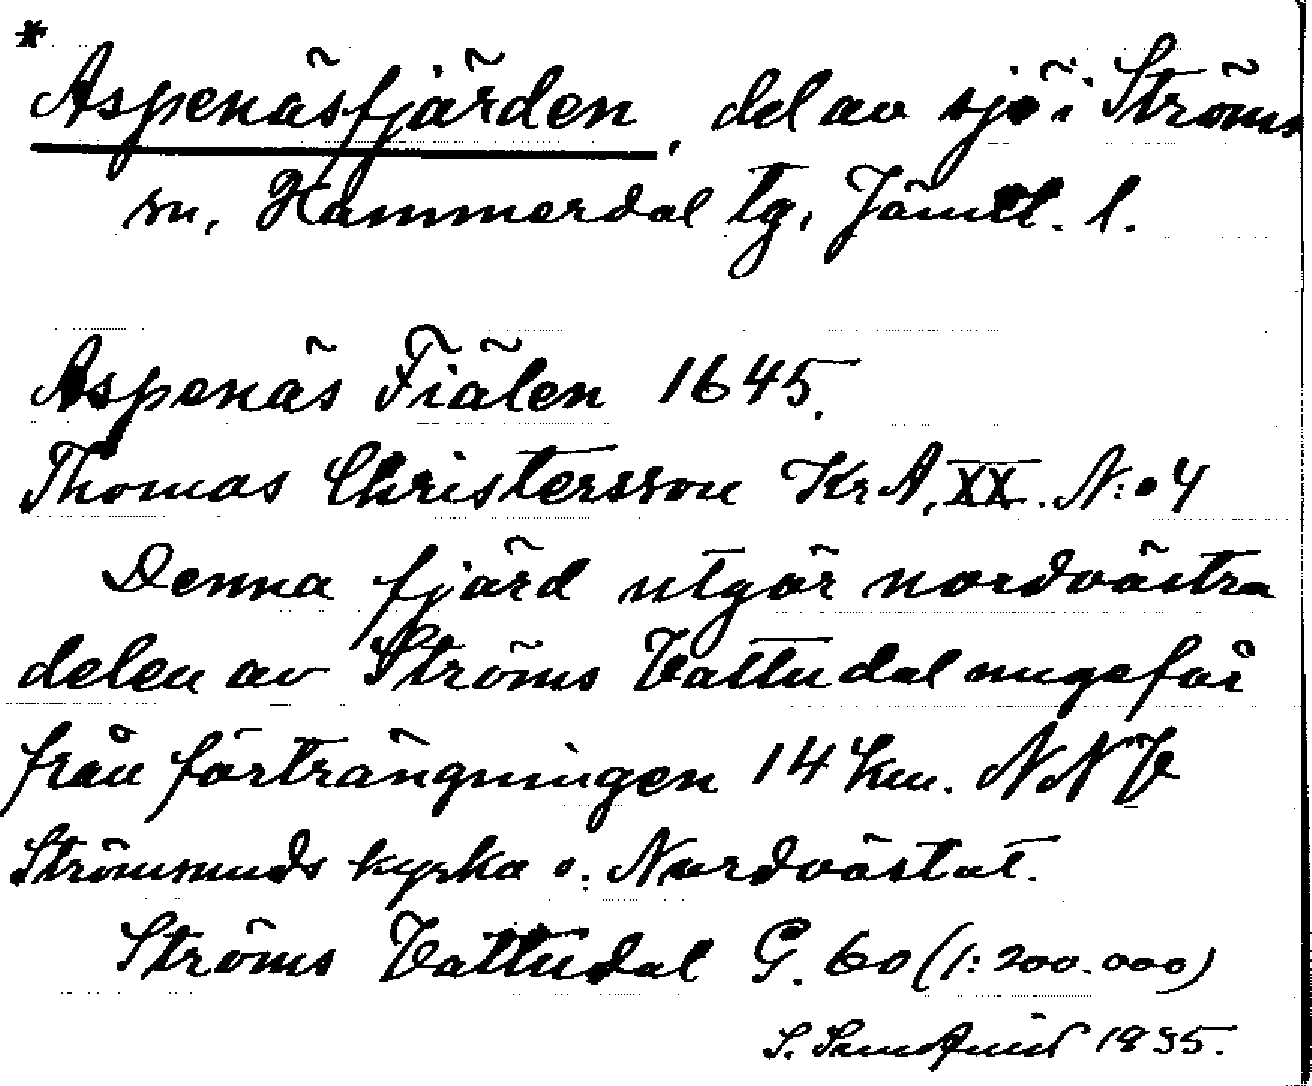 * Aspenäsfjärden, del av sjö i Ströms
sn, Hammerdal tg, Jämtl. l.
Aspenäs Fiälen 1645.
Thomas Christersson KrA, XX. N:o 4
Denna fjärd utgör nordvästra
delen av Ströms Vattudal ungefär
från förträngningen 14 km. NNV
Strömsunds kyrka o. Nordvästut.
Ströms Vattudal G. 60 (1:200.000)
S. 1935.